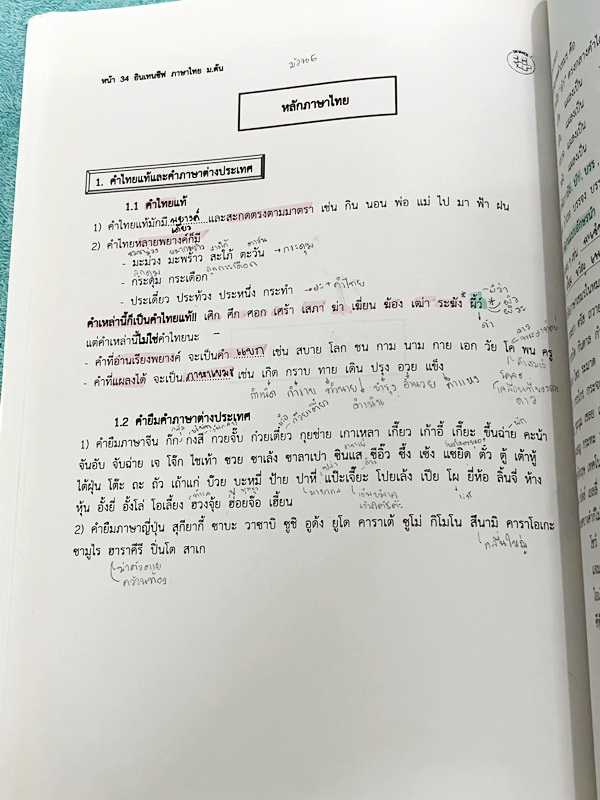 หน้า 34 อินเทนซีฟ ภาษาไทย ม.ต้น
หลักภาษาไทย
1. คำไทยแท้และคำภาษาต่างประเทศ
1.1 คำไทยแท้
1) คำไทยแท้มักมี พยางค์เดียว และสะกดตรงตามมาตรา เช่น กิน นอน พ่อ แม่ ไป มา ฟ้า ฝน
2) คำไทยหลายพยางค์ก็มี
- มะม่วง มะพร้าว สะใภ้ ตะวัน → กระดุม
- กระดุม กระเดือก
- ประเดี๋ยว ประท้วง ประหนึ่ง กระทำ
คำเหล่านี้ก็เป็นคำไทยแท้!! เศิก ศึก ศอก เศร้า เสภา ฆ่า เฆี่ยน ฆ้อง เฒ่า ระฆัง ผี้ว์
แต่คำเหล่านี้ไม่ใช่คำไทยนะ
- คำที่อ่านเรียงพยางค์ จะเป็นคำ แผลง เช่น สบาย โลก ชน กาม นาม กาย เอก วัย โค พน ครู
- คำที่แผลงได้ จะเป็น ภาษาเขมร เช่น เกิด กราบ ทาย เดิน ปรุง อวย แข็ง
กำเนิด กำราบ ทำนาย บำรุง อำนวย กำแหง
ดำเนิน
1.2 คำยืมคำภาษาต่างประเทศ
1) คำยืมภาษาจีน กั๊ก กงสี กวยจั๊บ ก๋วยเตี๋ยว กุยช่าย เกาเหลา เกี๊ยว เก้าอี้ เกี๊ยะ ขึ้นฉ่าย คะน้า
จันอับ จับฉ่าย เจ โจ๊ก ไชเท้า ซวย ซาเล้ง ซาลาเปา ซินแส ซีอิ๊ว ซึ้ง เซ้ง แซยิด ตั๋ว ตู้ เต้าหู้
ไต้ฝุ่น โต๊ะ ถะ ถัว เถ้าแก่ บ๊วย บะหมี่ ป้าย ปาหี่ แป๊ะเจี๊ยะ โปยเล้ง เปีย โผ ยี่ห้อ ลิ้นจี่ ห้าง
หุ้น อั้งยี่ อั้งโล่ โอเลี้ยง ฮวงจุ้ย ฮ่อยจ๊อ เฮี้ยน
2) คำยืมภาษาญี่ปุ่น สุกียากี้ ซาบะ วาซาบิ ซูชิ อูด้ง ยูโด คาราเต้ ซูโม่ กิโมโน สึนามิ คาราโอเกะ
ซามูไร ฮาราคีรี ปิ่นโต สาเก
คลื่นใหญ่
ฆ่าตัวตาย
คว้านท้อง